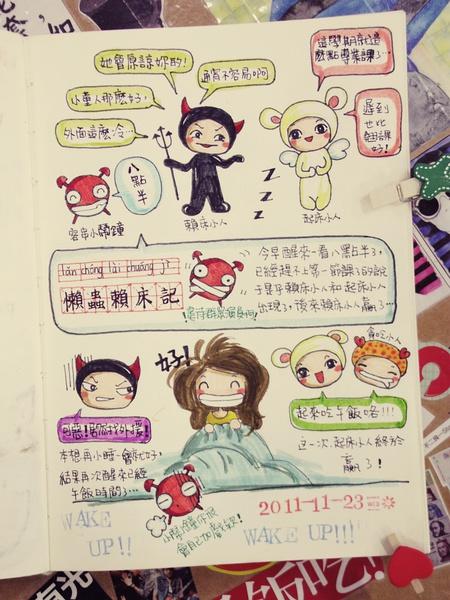 她會原諒妳的!
這學期就這
麼點專業課了…
小童人那麼好,
通宵不容易啊
外面這麼冷…
遲到
也比
翹課
好!
八
點
半
客串小鬧鐘
賴床小人
z
z
z
起床小人
lǎn chóng lài chuáng jì
懶蟲賴床記
今早醒來一看八點半了,
已經趕不上第一節課了的說
于是乎賴床小人和起床小人
出現了,後來賴床小人贏了…
好!
貪吃小人
起來吃午飯咯!!!
本想再小睡一會就好,
結果再次醒來已經
午飯時間了…
這一次,起床小人終於
贏了!
WAKE
UP!!
2011-11-23
WAKE
UP!!!
有光
飯吃!